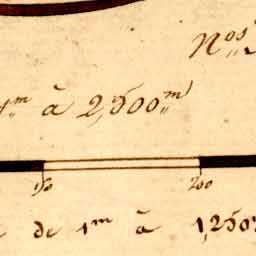 Nos
1m à 2,500m)
150 200
de 1m à 1,250